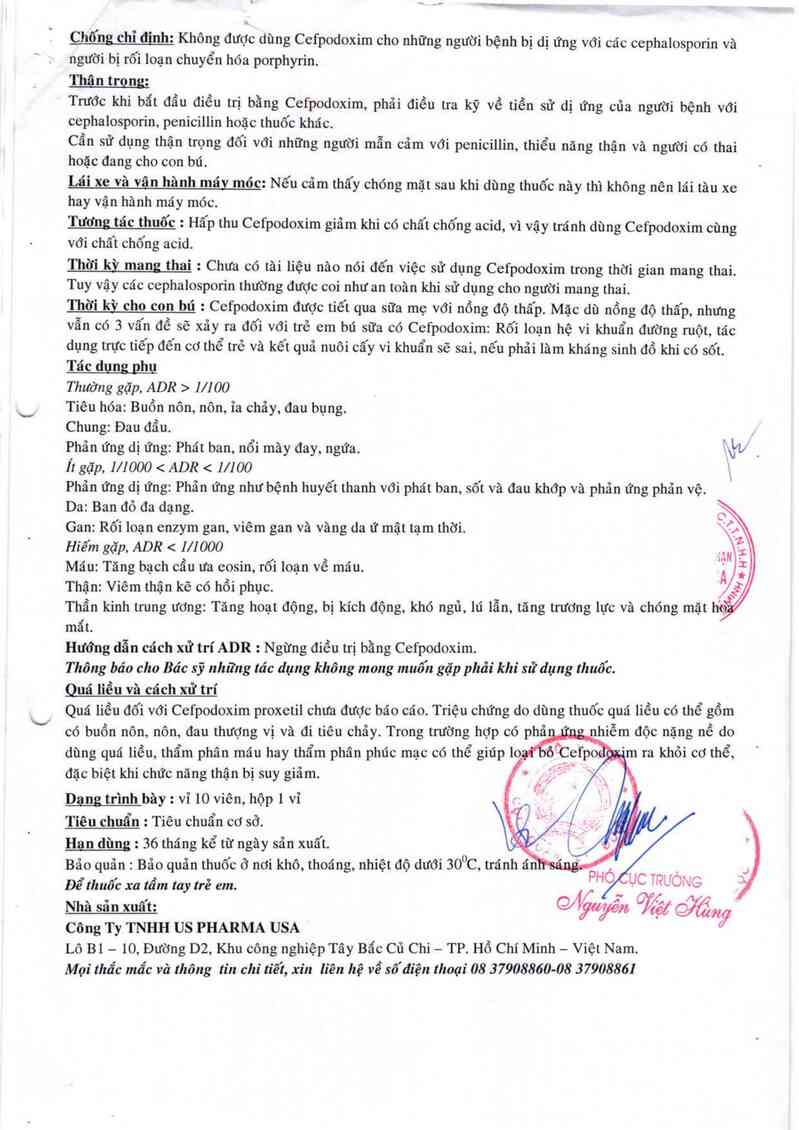 Chống chỉ định: Không được dùng Cefpodoxim cho những người bệnh bị dị ứng với các cephalosporin và
người bị rối loạn chuyển hóa porphyrin.
Thận trọng:
Trước khi bắt đầu điều trị bằng Cefpodoxim, phải điều tra kỹ về tiền sử dị ứng của người bệnh với
cephalosporin, penicillin hoặc thuốc khác.
Cần sử dụng thận trọng đối với những người mẫn cảm với penicillin, thiểu năng thận và người có thai
hoặc đang cho con bú.
Lái xe và vận hành máy móc: Nếu cảm thấy chóng mặt sau khi dùng thuốc này thì không nên lái tàu xe
hay vận hành máy móc.
Tương tác thuốc : Hấp thu Cefpodoxim giảm khi có chất chống acid, vì vậy tránh dùng Cefpodoxim cùng
với chất chống acid.
Thời kỳ mang thai : Chưa có tài liệu nào nói đến việc sử dụng Cefpodoxim trong thời gian mang thai.
Tuy vậy các cephalosporin thường được coi như an toàn khi sử dụng cho người mang thai.
Thời kỳ cho con bú : Cefpodoxim được tiết qua sữa mẹ với nồng độ thấp. Mặc dù nồng độ thấp, nhưng
vẫn có 3 vấn đề sẽ xảy ra đối với trẻ em bú sữa có Cefpodoxim: Rối loạn hệ vi khuẩn đường ruột, tác
dụng trực tiếp đến cơ thể trẻ và kết quả nuôi cấy vi khuẩn sẽ sai, nếu phải làm kháng sinh đồ khi có sốt.
Tác dụng phụ
Thường gặp, ADR > 1/100
Tiêu hóa: Buồn nôn, nôn, ỉa chảy, đau bụng.
Chung: Đau đầu.
Phản ứng dị ứng: Phát ban, nổi mày đay, ngứa.
Ít gặp, 1/1000 < ADR < 1/100
Phản ứng dị ứng: Phản ứng như bệnh huyết thanh với phát ban, sốt và đau khớp và phản ứng phản vệ.
Da: Ban đỏ đa dạng.
Gan: Rối loạn enzym gan, viêm gan và vàng da ứ mật tạm thời.
Hiếm gặp, ADR < 1/1000
Máu: Tăng bạch cầu ưa eosin, rối loạn về máu.
Thận: Viêm thận kẽ có hồi phục.
Thần kinh trung ương: Tăng hoạt động, bị kích động, khó ngủ, lú lẫn, tăng trương lực và chóng mặt hoa
mắt.
Hướng dẫn cách xử trí ADR : Ngừng điều trị bằng Cefpodoxim.
Thông báo cho Bác sỹ những tác dụng không mong muốn gặp phải khi sử dụng thuốc.
Quá liều và cách xử trí
Quá liều đối với Cefpodoxim proxetil chưa được báo cáo. Triệu chứng do dùng thuốc quá liều có thể gồm
có buồn nôn, nôn, đau thượng vị và đi tiêu chảy. Trong trường hợp có phản ứng nhiễm độc nặng nề do
dùng quá liều, thẩm phân máu hay thẩm phân phúc mạc có thể giúp loại bỏ Cefpodoxim ra khỏi cơ thể,
đặc biệt khi chức năng thận bị suy giảm.
Dạng trình bày : vỉ 10 viên, hộp 1 vỉ
Tiêu chuẩn : Tiêu chuẩn cơ sở.
Hạn dùng : 36 tháng kể từ ngày sản xuất.
Bảo quản : Bảo quản thuốc ở nơi khô, thoáng, nhiệt độ dưới 30⁰C, tránh ánh sáng.
Để thuốc xa tầm tay trẻ em.
PHÓ CỤC TRƯỞNG
Nguyễn Việt Hùng
Nhà sản xuất:
Công Ty TNHH US PHARMA USA
Lô B1 – 10, Đường D2, Khu công nghiệp Tây Bắc Củ Chi – TP. Hồ Chí Minh – Việt Nam.
Mọi thắc mắc và thông tin chi tiết, xin liên hệ về số điện thoại 08 37908860-08 37908861